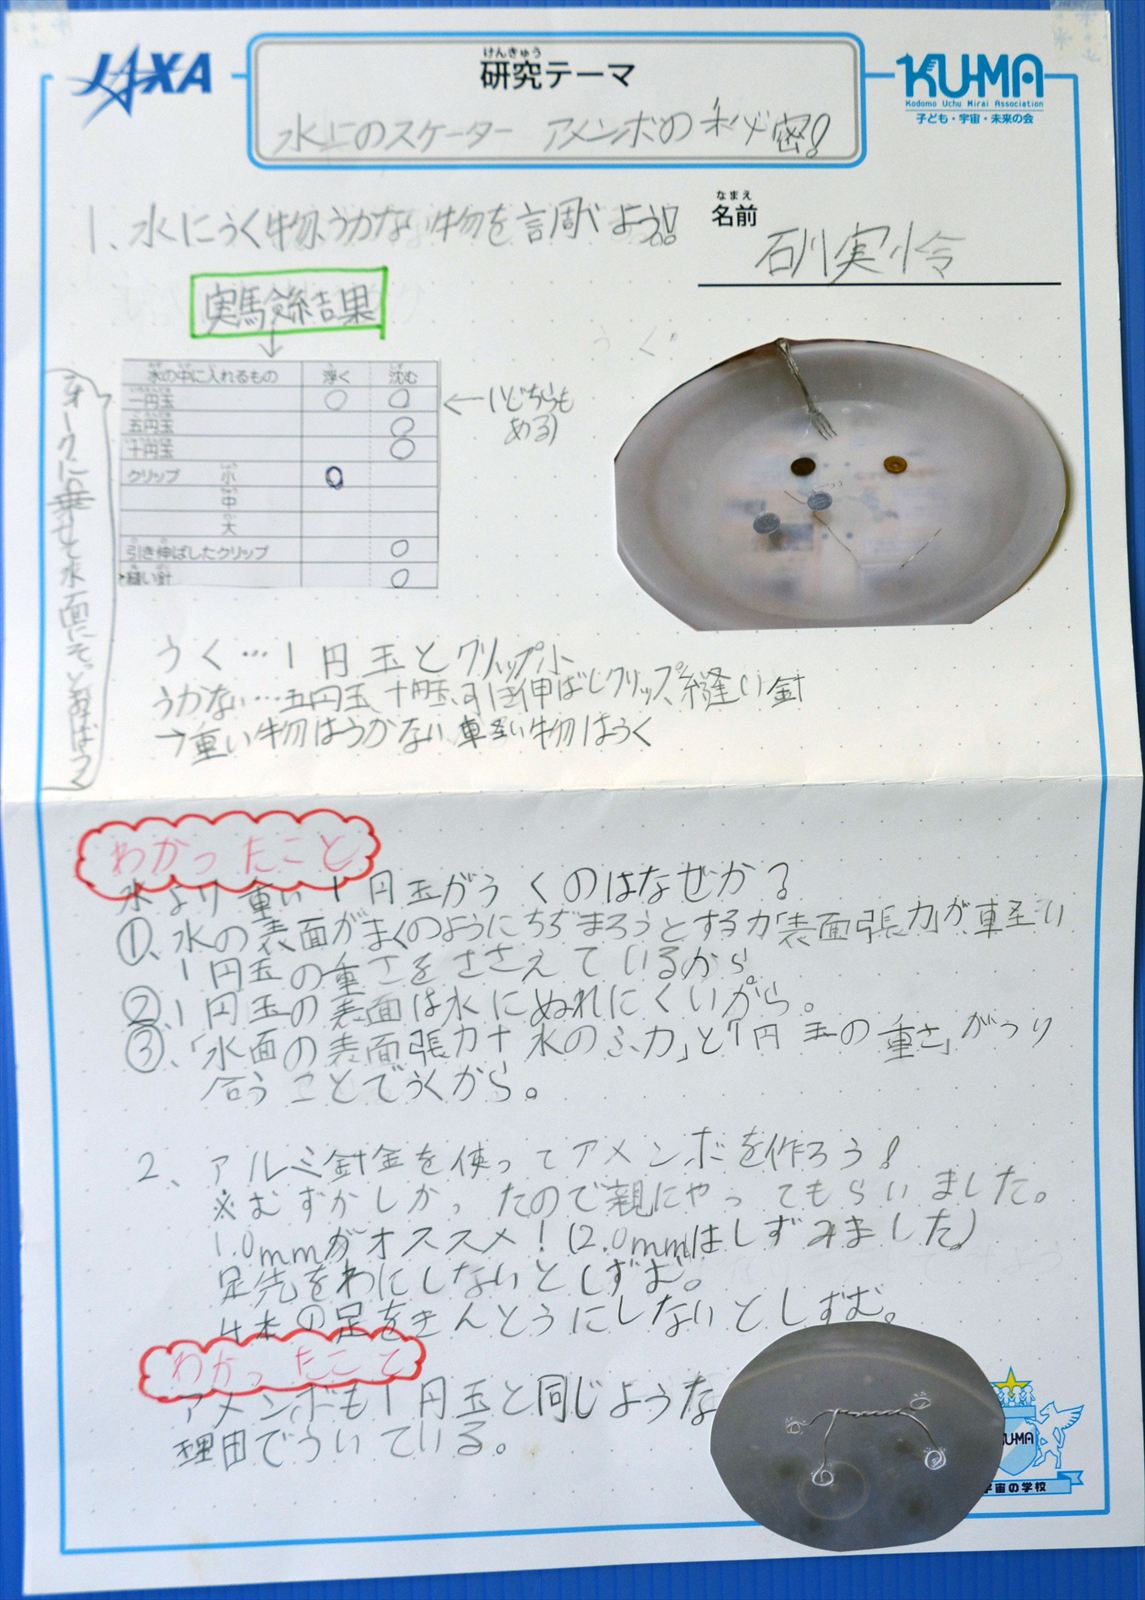 JAXA
けんきゅう
研究テーマ
水上のスケーター アメンボの秘密!
KU-MA
Kodomo Uchu Mirai Association
子ども・宇宙・未来の会
1、水にうく物、うかない物を調べよう!
なまえ
名前
石川実怜
実験結果
水の中に入れるもの 浮く 沈む
一円玉 ○ ○
←(どちらも
ある)
五円玉 ○
十円玉 ○
クリップ 小 ○
中
大
引き伸ばしたクリップ ○
縫い針 ○
フォークに乗せて水面にそっとおばマ
うく…1円玉とクリップ小
うかない…五円玉、十円玉、引き伸ばしクリップ、縫い針
→重い物はうかない 軽い物はうく
わかったこと
水より重い1円玉がうくのはなぜか?
①、水の表面がまくのようにちぢまろうとする力「表面張力」が軽い
1円玉の重さをささえているから。
②、1円玉の表面は水にぬれにくいから。
③、「水面の表面張力+水のふ力」と「1円玉の重さ」がつり
合うことでうくから。
2、アルミ針金を使ってアメンボを作ろう!
※むずかしかったので親にやってもらいました。
1.0mmがオススメ!(2.0mmはしずみました)
足先をわにしないとしずむ。
4本の足をきんとうにしないとしずむ。
わかったこと
アメンボも1円玉と同じような
理由でういている。
KU-MA
宇宙の学校